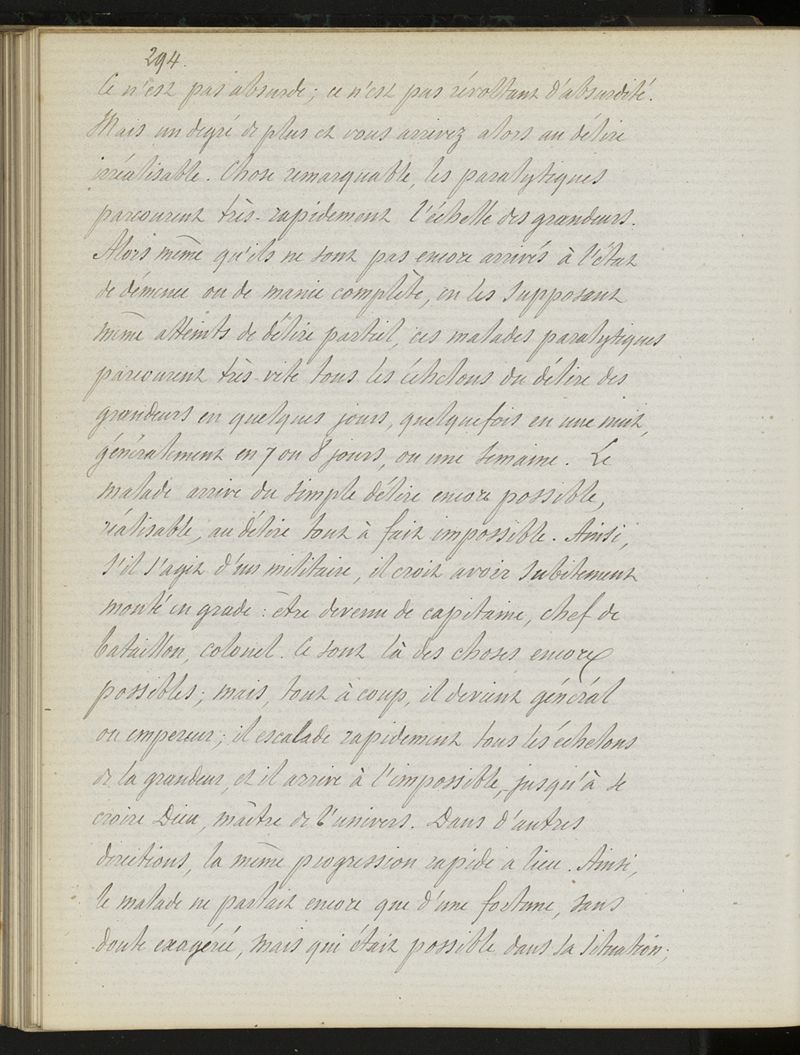 294.
Ce n'est pas absurde; ce n'est pas révoltant d'absurdité.
Mais un degré de plus et vous arrivez alors au délire
irréalisable. Chose remarquable, les paralytiques
parcourent très-rapidement l'échelle des grandeurs.
Alors même qu'ils ne sont pas encore arrivés à l'état
de démence ou de manie complète, en les supposant
même atteints de délire partiel, ces malades paralytiques
parcourent très-vite tous les échelons du délire des
grandeurs en quelques jours, quelquefois en une nuit,
généralement en 7 ou 8 jours, ou une semaine. Le
malade arrive du simple délire encore possible,
réalisable, au délire tout à fait impossible. Ainsi,
s'il s'agit d'un militaire, il croit avoir subitement
monté en grade: être devenu de capitaine, chef de
bataillon, colonel. Ce sont là des choses encore
possibles; mais, tout à coup, il devient général
ou empereur; il escalade rapidement tous les échelons
de la grandeur, et il arrive à l'impossible, jusqu'à se
croire Dieu, maître de l'univers. Dans d'autres
directions, la même progression rapide a lieu. Ainsi,
le malade ne parlait encore que d'une fortune, sans
doute exagérée, mais qui était possible dans sa situation;